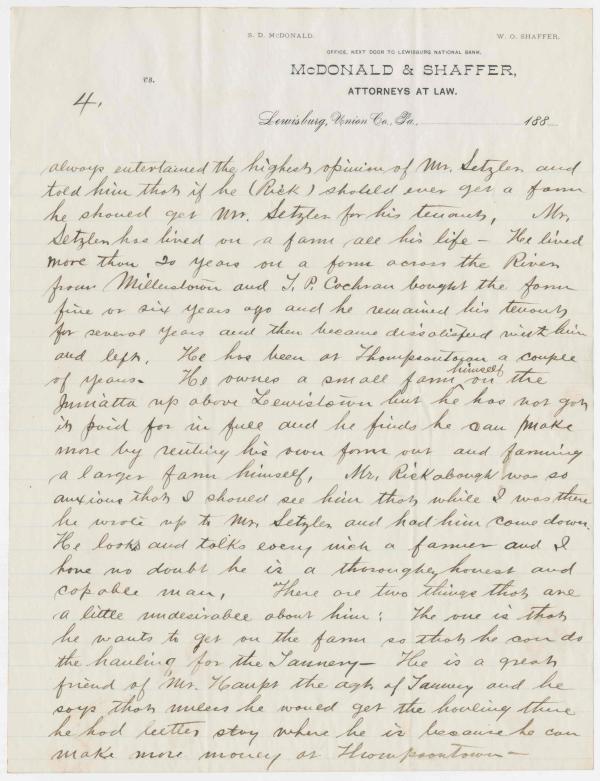 S. D. McDONALD.
W. O. SHAFFER.
OFFICE, NEXT DOOR TO LEWISBURG NATIONAL BANK.
McDONALD & SHAFFER,
vs.
ATTORNEYS AT LAW.
4.
Lewisburg, Union Co., Pa., 188
always entertained the highest opinion of Mr. Setzler and
told him that if he (Rick) should ever get a farm
he should get Mr. Setzler for his tenant, Mr.
Setzler has lived on a farm all his life – He lived
more than 20 years on a farm across the River
from Millerstown and T. P. Cochran bought the farm
five or six years ago and he remained his tenant
for several years and then became dissatisfied with him
and left. He has been at Thompsontown a couple
of years – He owns a small farm himself on the
Juniatta up above Lewistown but he has not got
it paid for in full and he finds he can make
more by renting his own farm out and farming
a larger farm himself. Mr. Rickabough was so
anxious that I should see him that while I was there
he wrote up to Mr. Setzler and had him come down.
He looks and talks every inch a farmer and I
have no doubt he is a thorougher honest and
capable man, There are two things that are
a little undesirable about him: The one is that
he wants to get on the farm so that he can do
the hauling for the Tannery – He is a great
friend of Mr. Haupt the agt of Tannery and he
says that unless he would get the hauling there
he had better stay where he is because he can
make more money at Thompsontown –